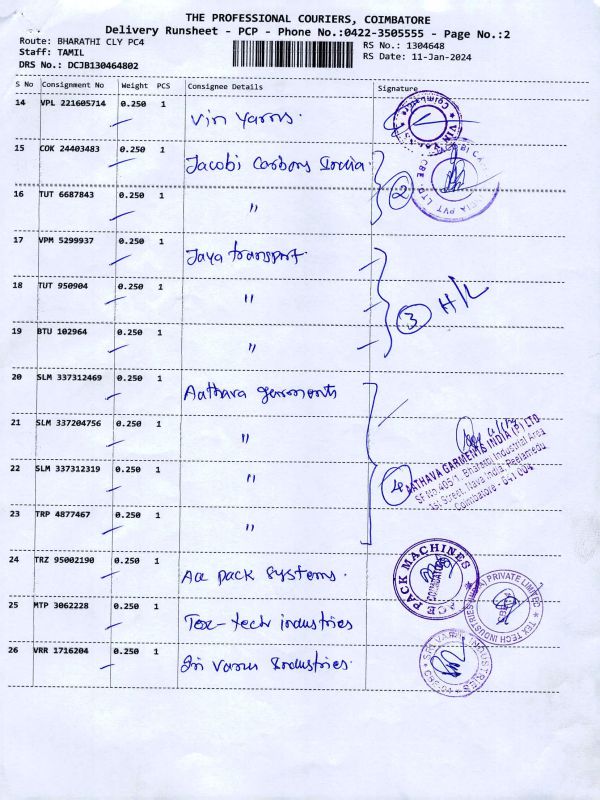 THE PROFESSIONAL COURIERS, COIMBATORE
Delivery Runsheet - PCP - Phone No.:0422-3505555 - Page No.:2
Route: BHARATHI CLY PC4
Staff: TAMIL
DRS No.: DCJB130464802
RS No.: 1304648
RS Date: 11-Jan-2024
S No Consignment No Weight PCS Consignee Details Signature
14 VPL 221605714 0.250 1 Vin Yarns.
15 COK 24403483 0.250 1 Jacobi Carbons India.
16 TUT 6687843 0.250 1 "
2
17 VPM 5299937 0.250 1 Jaya transport.
18 TUT 950904 0.250 1 "
3 H/L
19 BTU 102964 0.250 1 "
20 SLM 337312469 0.250 1 Aathava garments
21 SLM 337204756 0.250 1 "
22 SLM 337312319 0.250 1 "
4
AATHAVA GARMENTS INDIA (P) LTD
SF No. 405/1, Bharathi Industrial Area
1st Street, Nava India, Peelamedu
Coimbatore - 641 004
23 TRP 4877467 0.250 1 "
24 TRZ 95002190 0.250 1 Ace pack systems.
ACE PACK MACHINES
COIMBATORE
25 MTP 3062228 0.250 1 Tex-tech industries
TEX TECH INDUSTRIES (INDIA) PRIVATE LIMITED
26 VRR 1716204 0.250 1 Sri Varun Industries.